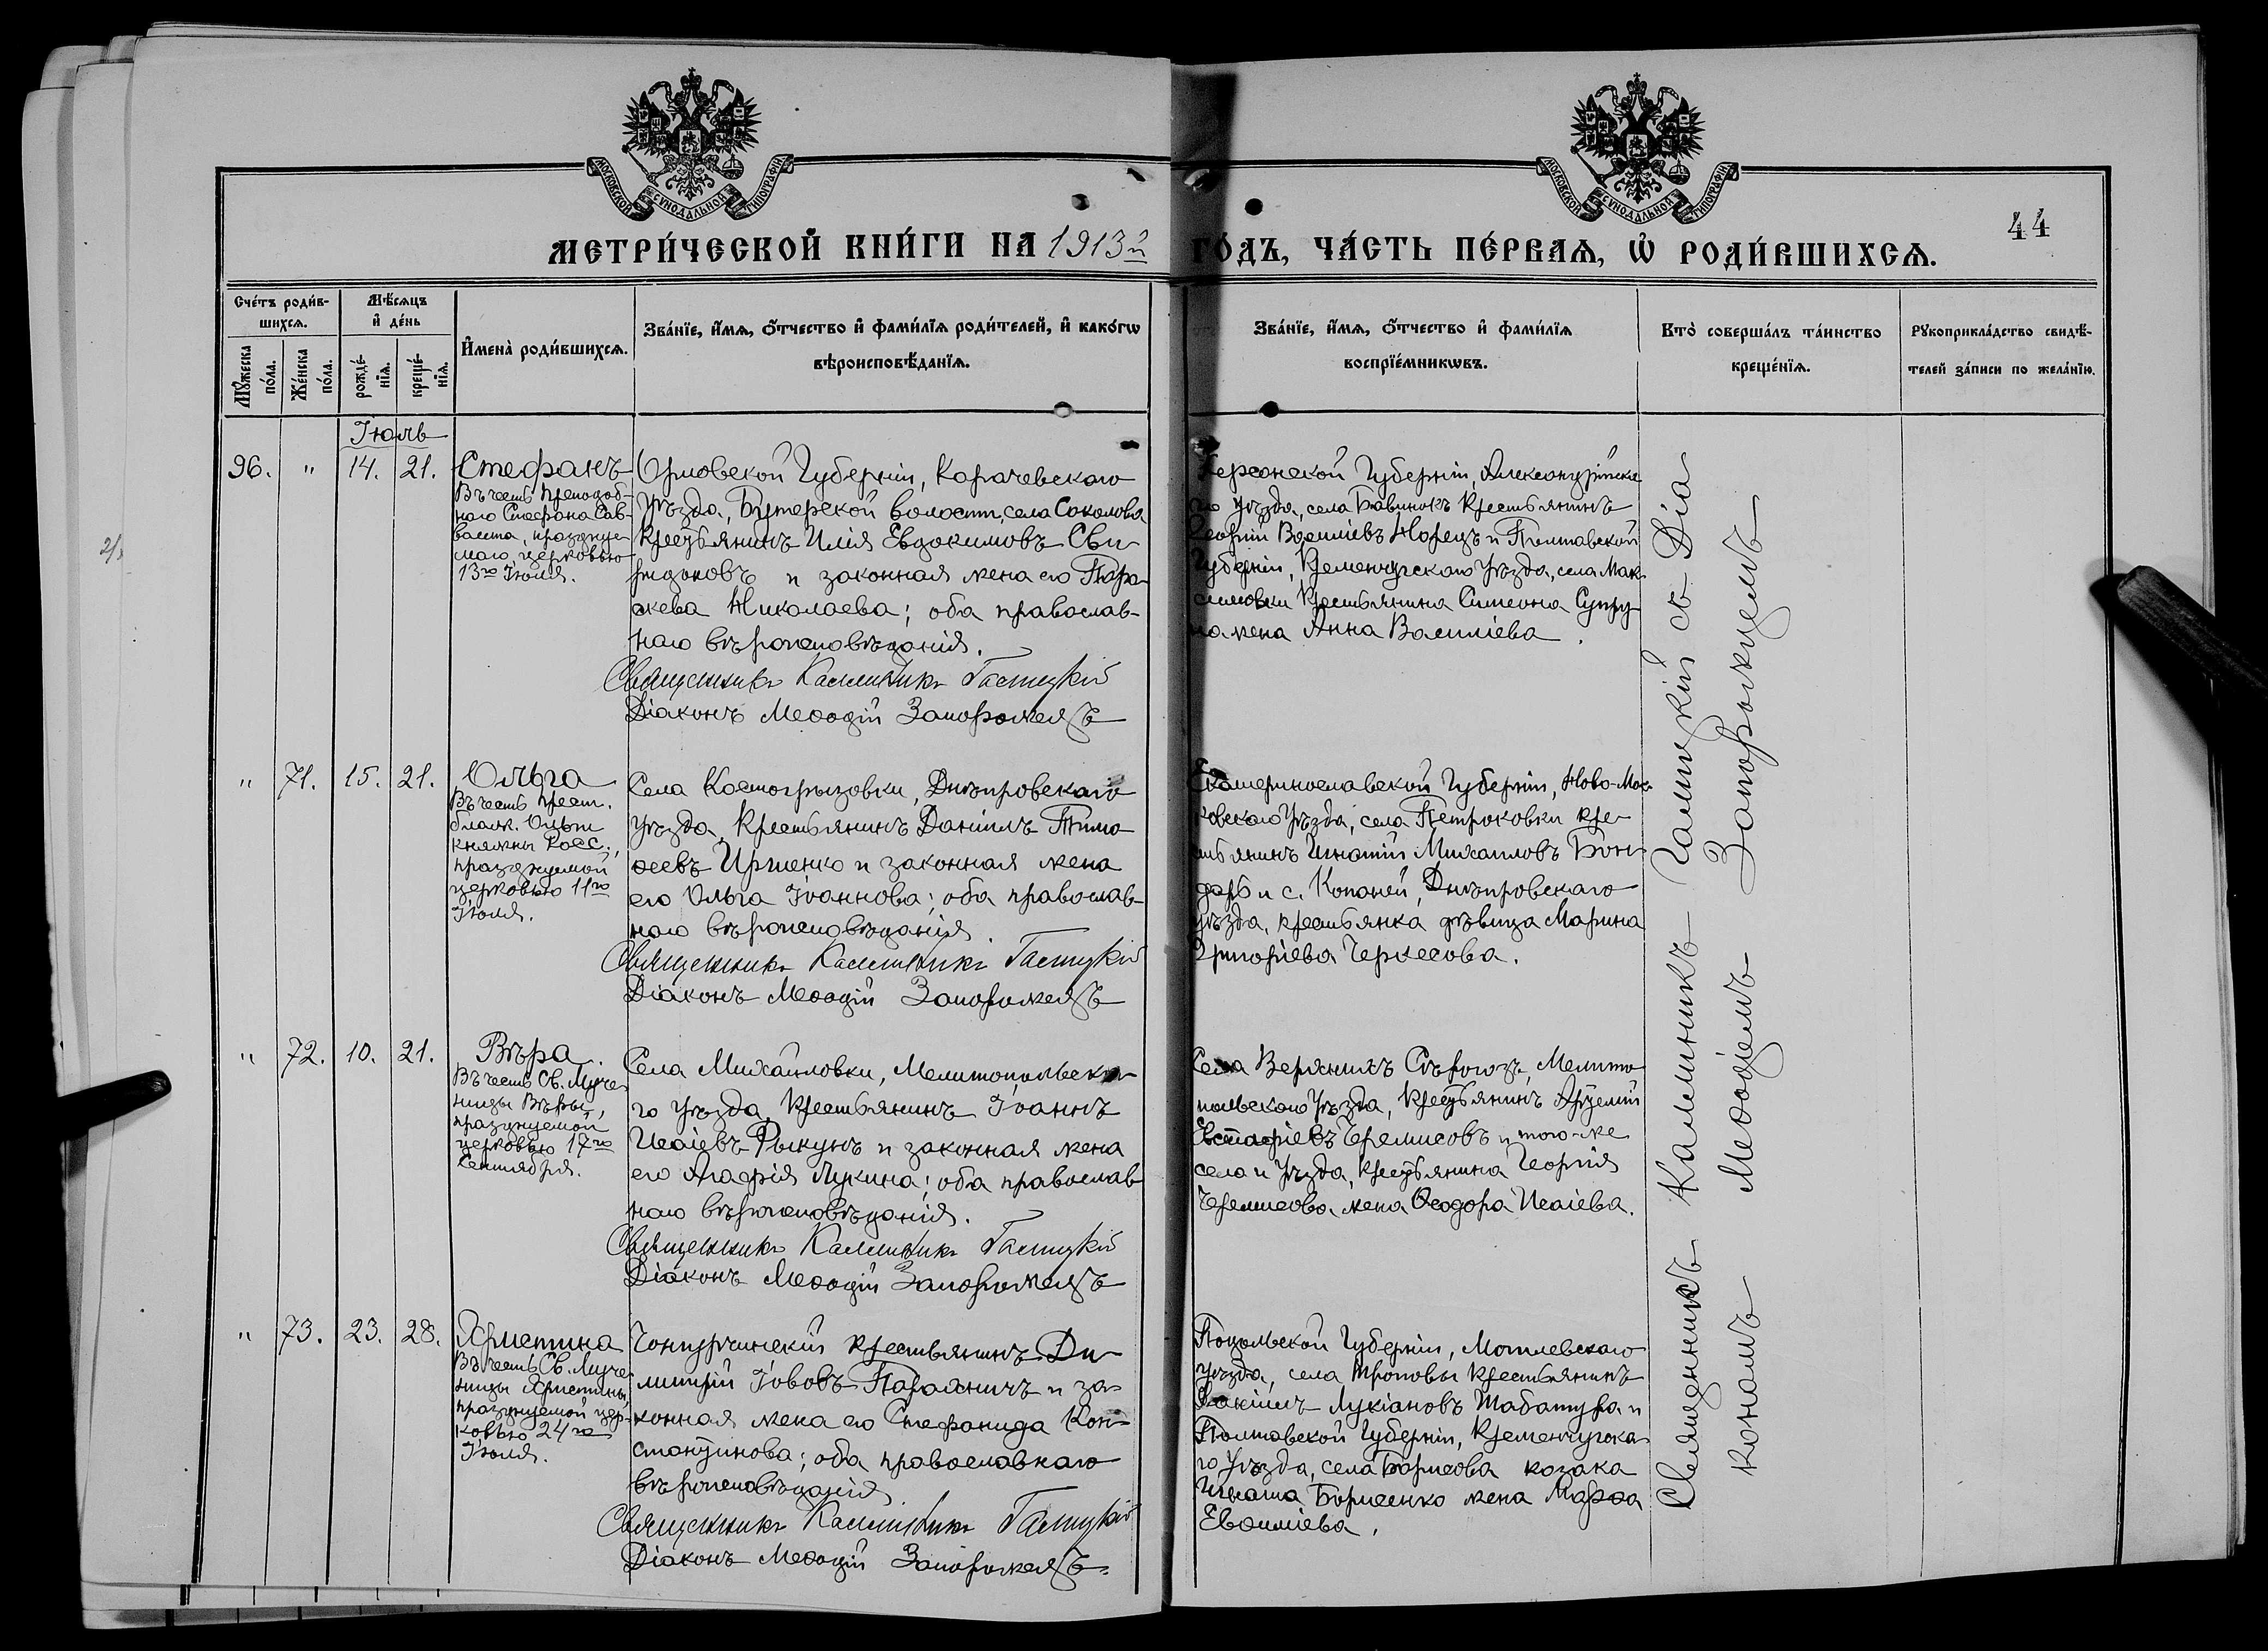 МОСКОВСКОЙ СѴНОДАЛЬНОЙ ТИПОГРАФІИ
МОСКОВСКОЙ СѴНОДАЛЬНОЙ ТИПОГРАФІИ
44
МЕТРИ́ЧЕСКОЙ КНИ́ГИ НА 1913й ГО́ДЪ, ЧА́СТЬ ПЕ́РВАѦ, Ѡ҆ РОДИ́ВШИХСѦ.
Сче́тъ роди́в-
шихсѧ.
Мꙋ́жеска
по́ла.
Же́нска
по́ла.
Мѣ́сѧцъ
и҆ де́нь
рожде́-
нїѧ.
креще́-
нїѧ.
И҆мена̀ роди́вшихсѧ.
Зва́нїе, и҆́мѧ, ѻ҆́тчество и҆ фами́лїѧ роди́телей, и҆ како́гѡ
вѣроисповѣ́данїѧ.
Зва́нїе, и҆́мѧ, ѻ҆́тчество и҆ фами́лїѧ
воспрїе́мникѡвъ.
Кто̀ соверша́лъ та́инство
креще́нїѧ.
Рꙋкоприкла́дство свидѣ́-
телей за́писи по жела́нїю.
Іюль
96. " 14. 21.
Стефанъ
Въ честь преподоб-
наго Стефана Сав-
ваита, празднуе-
маго церковью
13го Іюля.
Орловской Губерніи, Карачевскаго
уѣзда, Бутерской волости, села Соколова
крестьянинъ Илія Евдокимовъ Сви-
ридоновъ и законная жена его Пара-
скева Николаева; оба православ-
наго вѣроисповѣданія.
Священникъ Каллиникъ Галицкій
Діаконъ Меѳодій Запорожецъ
Херсонской Губерніи, Александрійска-
го уѣзда, села крестьянинъ
Георгій Василіевъ и Полтавской
Губерніи, Кременчугскаго уѣзда, села Мак-
симовки крестьянина Симеона Супру-
на жена Анна Василіева.
" 71. 15. 21.
Ольга
Въ честь
благ. Ольги
княжны Росс.,
празднуемой
церковью 11го
Іюля.
Села Костогрызовки, Днѣпровскаго
уѣзда, крестьянинъ Даніилъ Тимо-
ѳеевъ и законная жена
его Ольга Іоаннова; оба православ-
наго вѣроисповѣданія.
Священникъ Каллиникъ Галицкій
Діаконъ Меѳодій Запорожецъ
Екатеринославской Губерніи, Ново-Мос-
ковскаго уѣзда, села Петриковки кре-
стьянинъ Игнатій Михаиловъ Бон-
дарь и с. Копаней, Днѣпровскаго
уѣзда, крестьянка дѣвица Марина
Григоріева Черкесова.
" 72. 10. 21.
Вѣра
Въ честь Св. Муче-
ницы Вѣры,
празднуемой
церковью 17го
Сентября.
Села Михайловки, Мелитопольска-
го уѣзда, крестьянинъ Іоаннъ
Исаіевъ Рыкунъ и законная жена
его Агафія Лукина; оба православ-
наго вѣроисповѣданія.
Священникъ Каллиникъ Галицкій
Діаконъ Меѳодій Запорожецъ
Села Верхнихъ Сѣрогозъ, Мелито-
польскаго уѣзда, крестьянинъ Артемій
Евстафіевъ Черемисовъ и того-же
села и уѣзда, крестьянина Георгія
Черемисова жена Ѳеодора Исаіева.
" 73. 23. 28.
Христина
Въ честь Св. Муче-
ницы Христины,
празднуемой цер-
ковью 24го
Іюля.
Чонгурчинскій крестьянинъ Ди-
митрій Іововъ и за-
конная жена его Стефанида Кон-
стантинова; оба православнаго
вѣроисповѣданія.
Священникъ Каллиникъ Галицкій
Діаконъ Меѳодій Запорожецъ
Подольской Губерніи, Могилевскаго
уѣзда, села Троповы крестьянинъ
Іоакимъ Лукіановъ Шабатура и
Полтавской Губерніи, Кременчугска-
го уѣзда, села Борисова козака
Игната Борисенко жена Марѳа
Евѳиміева.
Священникъ Каллиникъ Галицкій съ Діа-
кономъ Меѳодіемъ Запорожцемъ